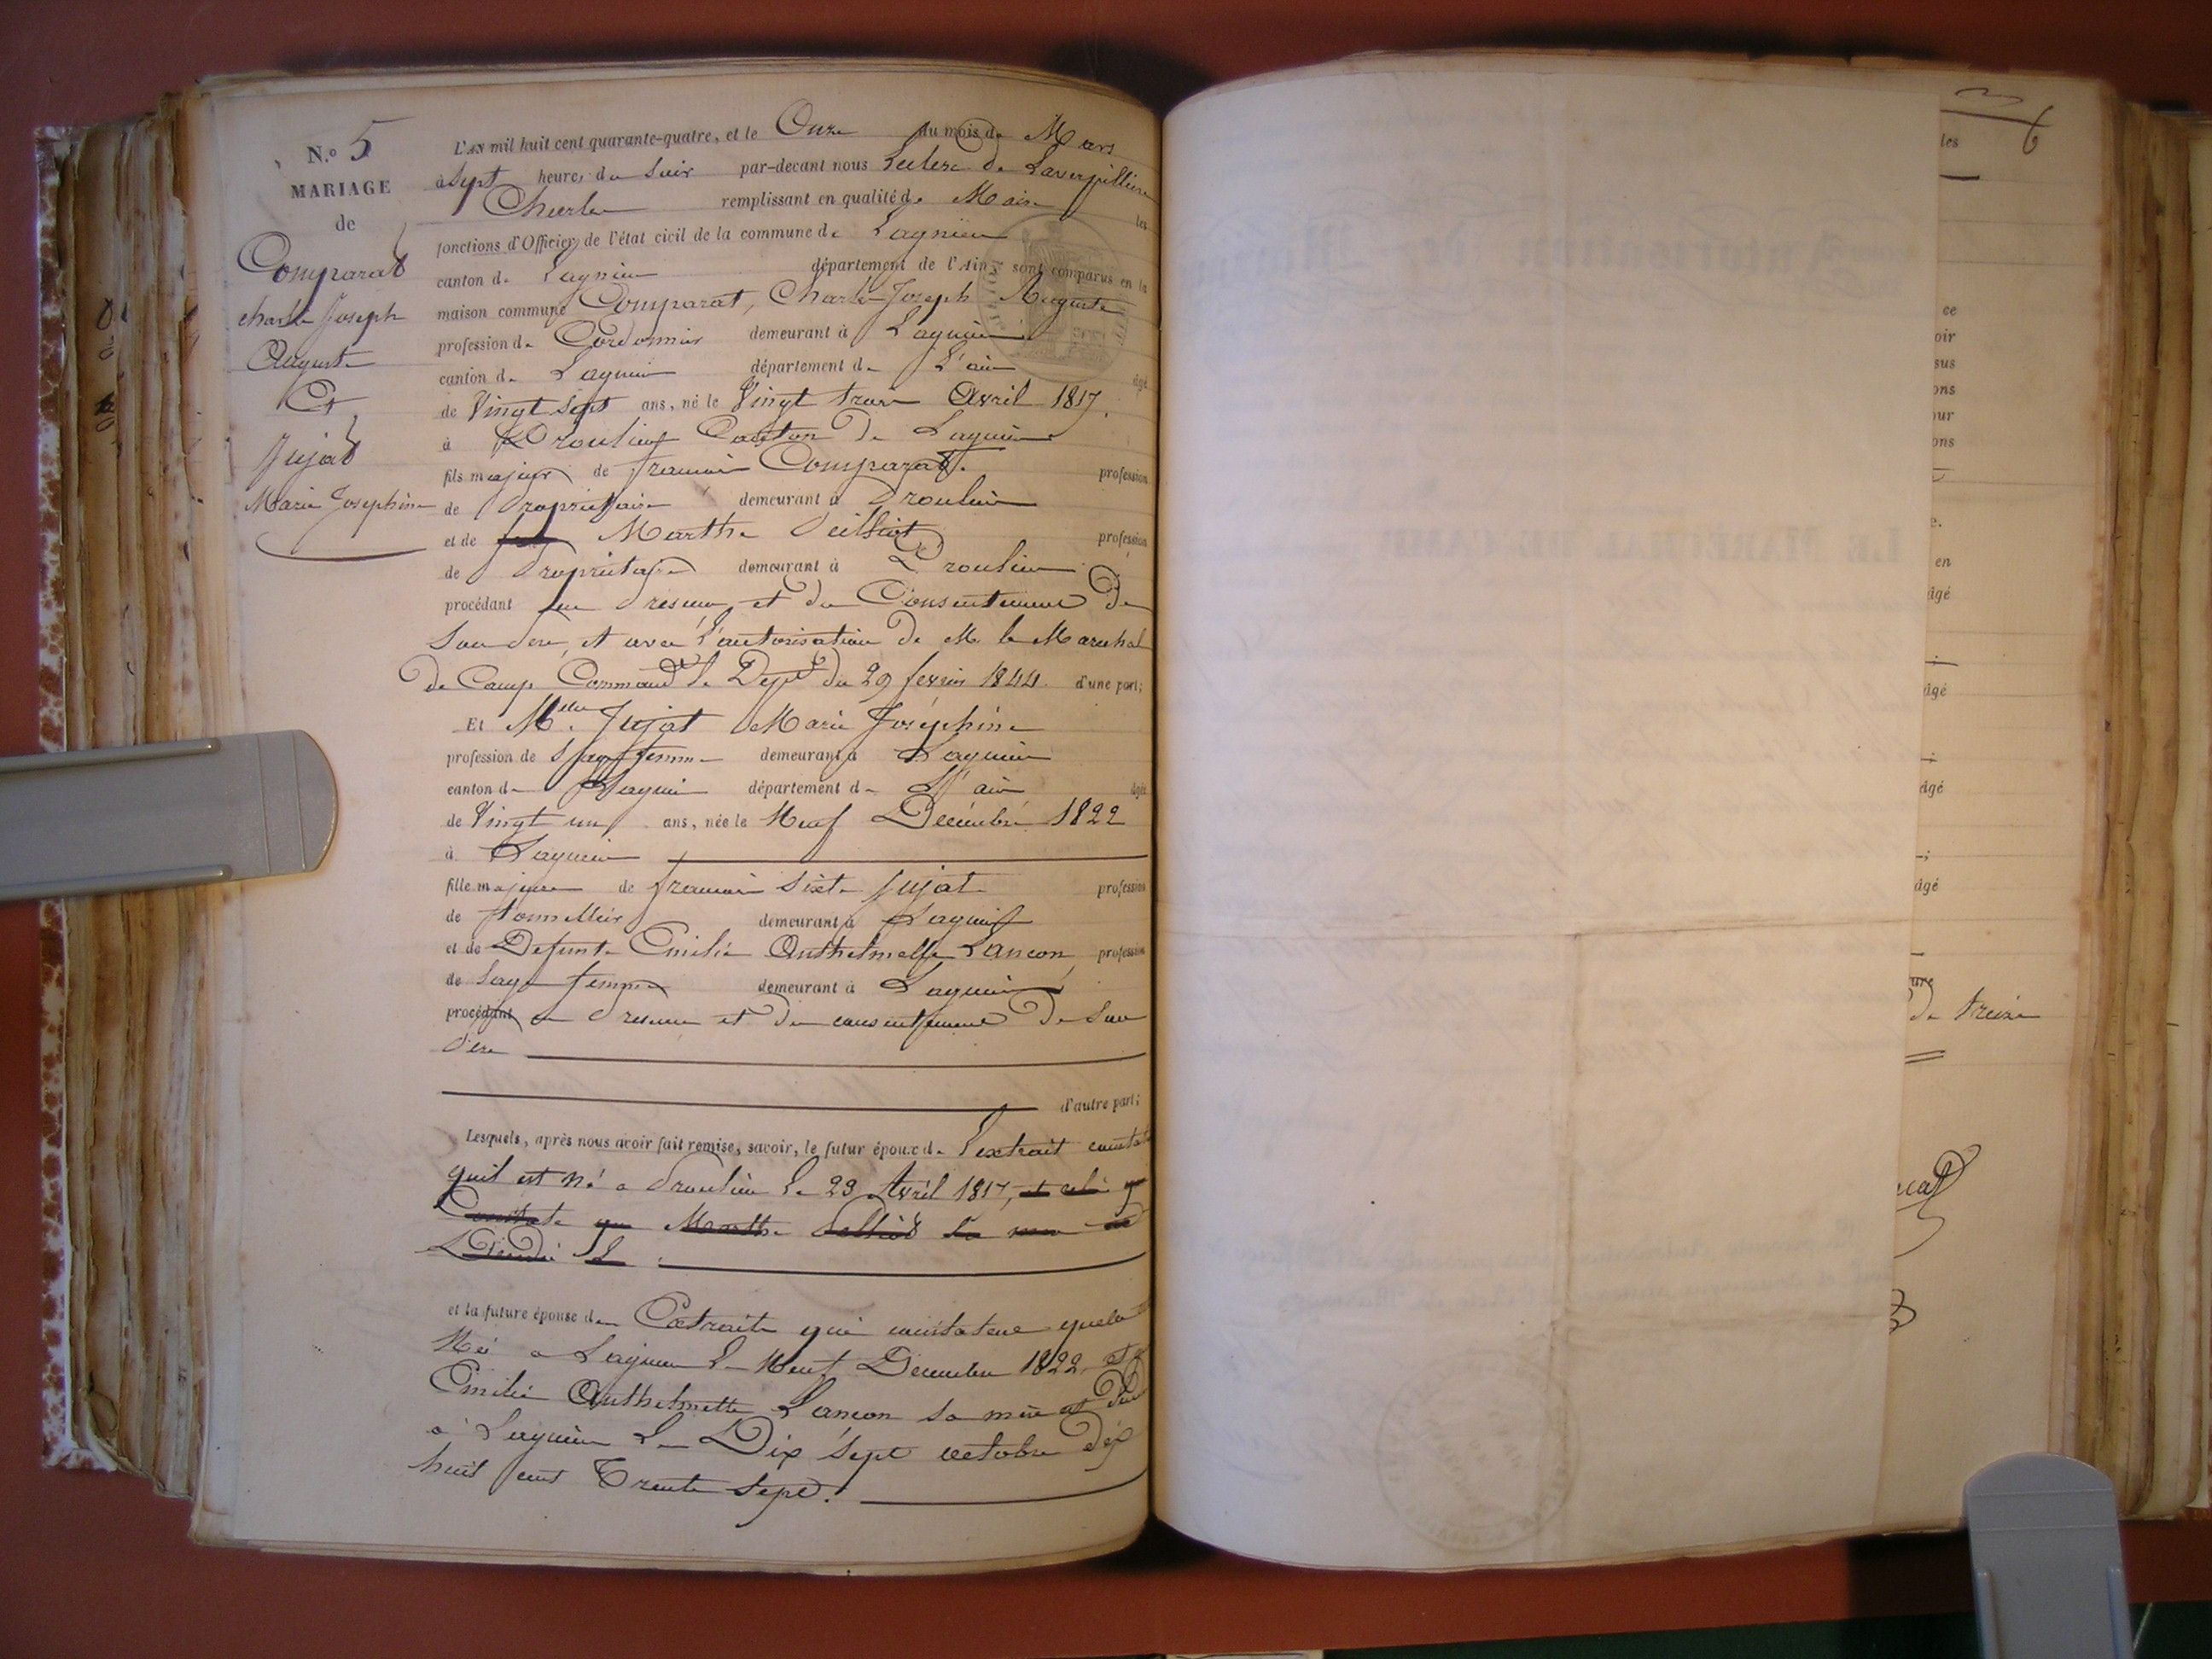 N.o 5
MARIAGE
de
Comparat
Charle Joseph
Auguste
Et
Jujat
Marie Josephine
L'AN mil huit cent quarante-quatre, et le Onze du mois de Mars
à Sept heures du Soir par-devant nous Leclerc de Laverpillière
Charles remplissant en qualité de Maire les
fonctions d'Officier de l'état civil de la commune de Lagnieu
canton de Lagnieu département de l'Ain, sont comparus en la
maison commune Comparat, Charle-Joseph Auguste
profession de Cordonnier demeurant à Lagnieu
canton de Lagnieu département de L'ain âgé
de Vingt Sept ans, né le Vingt trois Avril 1817.
à Proulieu Canton de Lagnieu
fils majeur de francois Comparat. profession
de Propriétaire demeurant à Proulieu
et de Marthe profession
de Propriétaire demeurant à Proulieu
procédant en presence et du Consentement de
Son Pere, et avec l'autorisation de M. le Marechal
de Camp Command.t le Dep.t du 29 fevrier 1844 d'une part;
Et M.elle Jujat Marie Joséphine
profession de Sage femme demeurant à Lagnieu
canton de Lagnieu département de L'ain âgée
de Vingt un ans, née le Neuf Décembre 1822
à Lagnieu
fille majeure de francois Sixte Jujat profession
de tonnellier demeurant à Lagnieu
et de Defunte Emilie Anthelmette Lancon, profession
de Sage femme demeurant à Lagnieu
procédant en presence et du consentement de Son
Pere
d'autre part;
Lesquels, après nous avoir fait remise, savoir, le futur époux de l'extrait constatant
quil est né a Proulieu le 23 Avril 1817, et celui q
Constate que Marthe sa mere est
Décedé le
et la future épouse de Extraits qui constatent quelle
Née a Lagnieu le Neuf Decembre 1822, et q
Emilie Anthelmette Lancon sa mère est Déc
à Lagnieu le Dix Sept octobre dix
huit cent Trente Sept.
6
les
ce
oir
sus
ons
our
ons
e.
en
âgé
âgé
âgé
âgé
ure
de treize